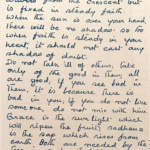 waivers from the crescent but
is fixed in steady faith.
When the sun is over your head,
there will be no shadow. So too
when faith is steady in your
heart, it should not cast any
shadow of doubt.
Do not talk ill of others, take
only of the good in them, all
are good. If you see bad in
them, it is because there is
bad in you, if you do not like
some one, do not mix with him
Grace is the sun light which
will ripen the fruit, sadhana
is the sap which rises from
earth. Both are needed by the